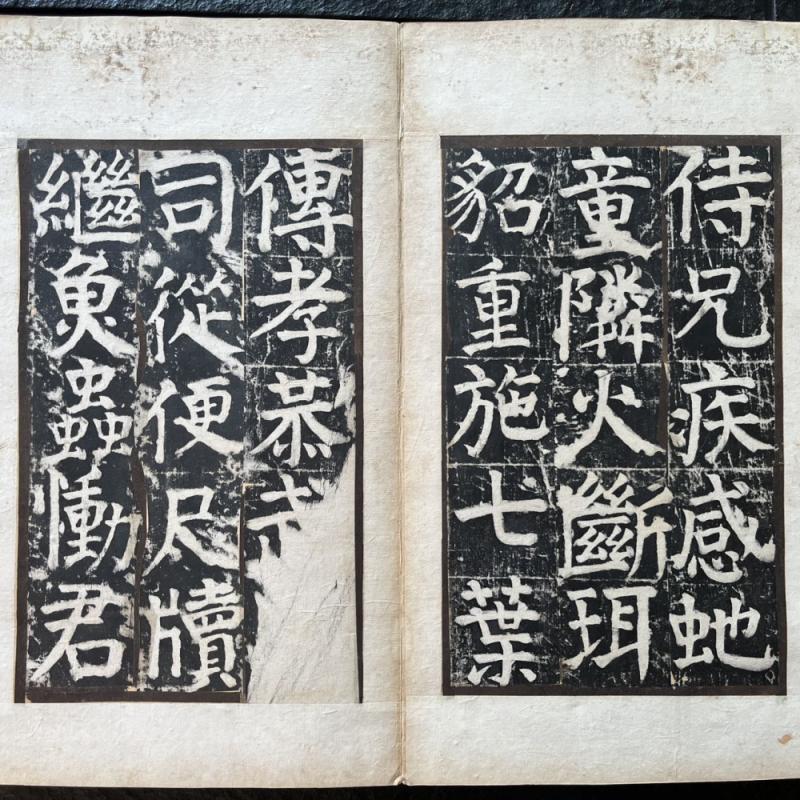 侍兄疾感虵
童隣火斷珥
貂重施七葉
傳孝恭
司從便尺牘
繼魚蟲慟君